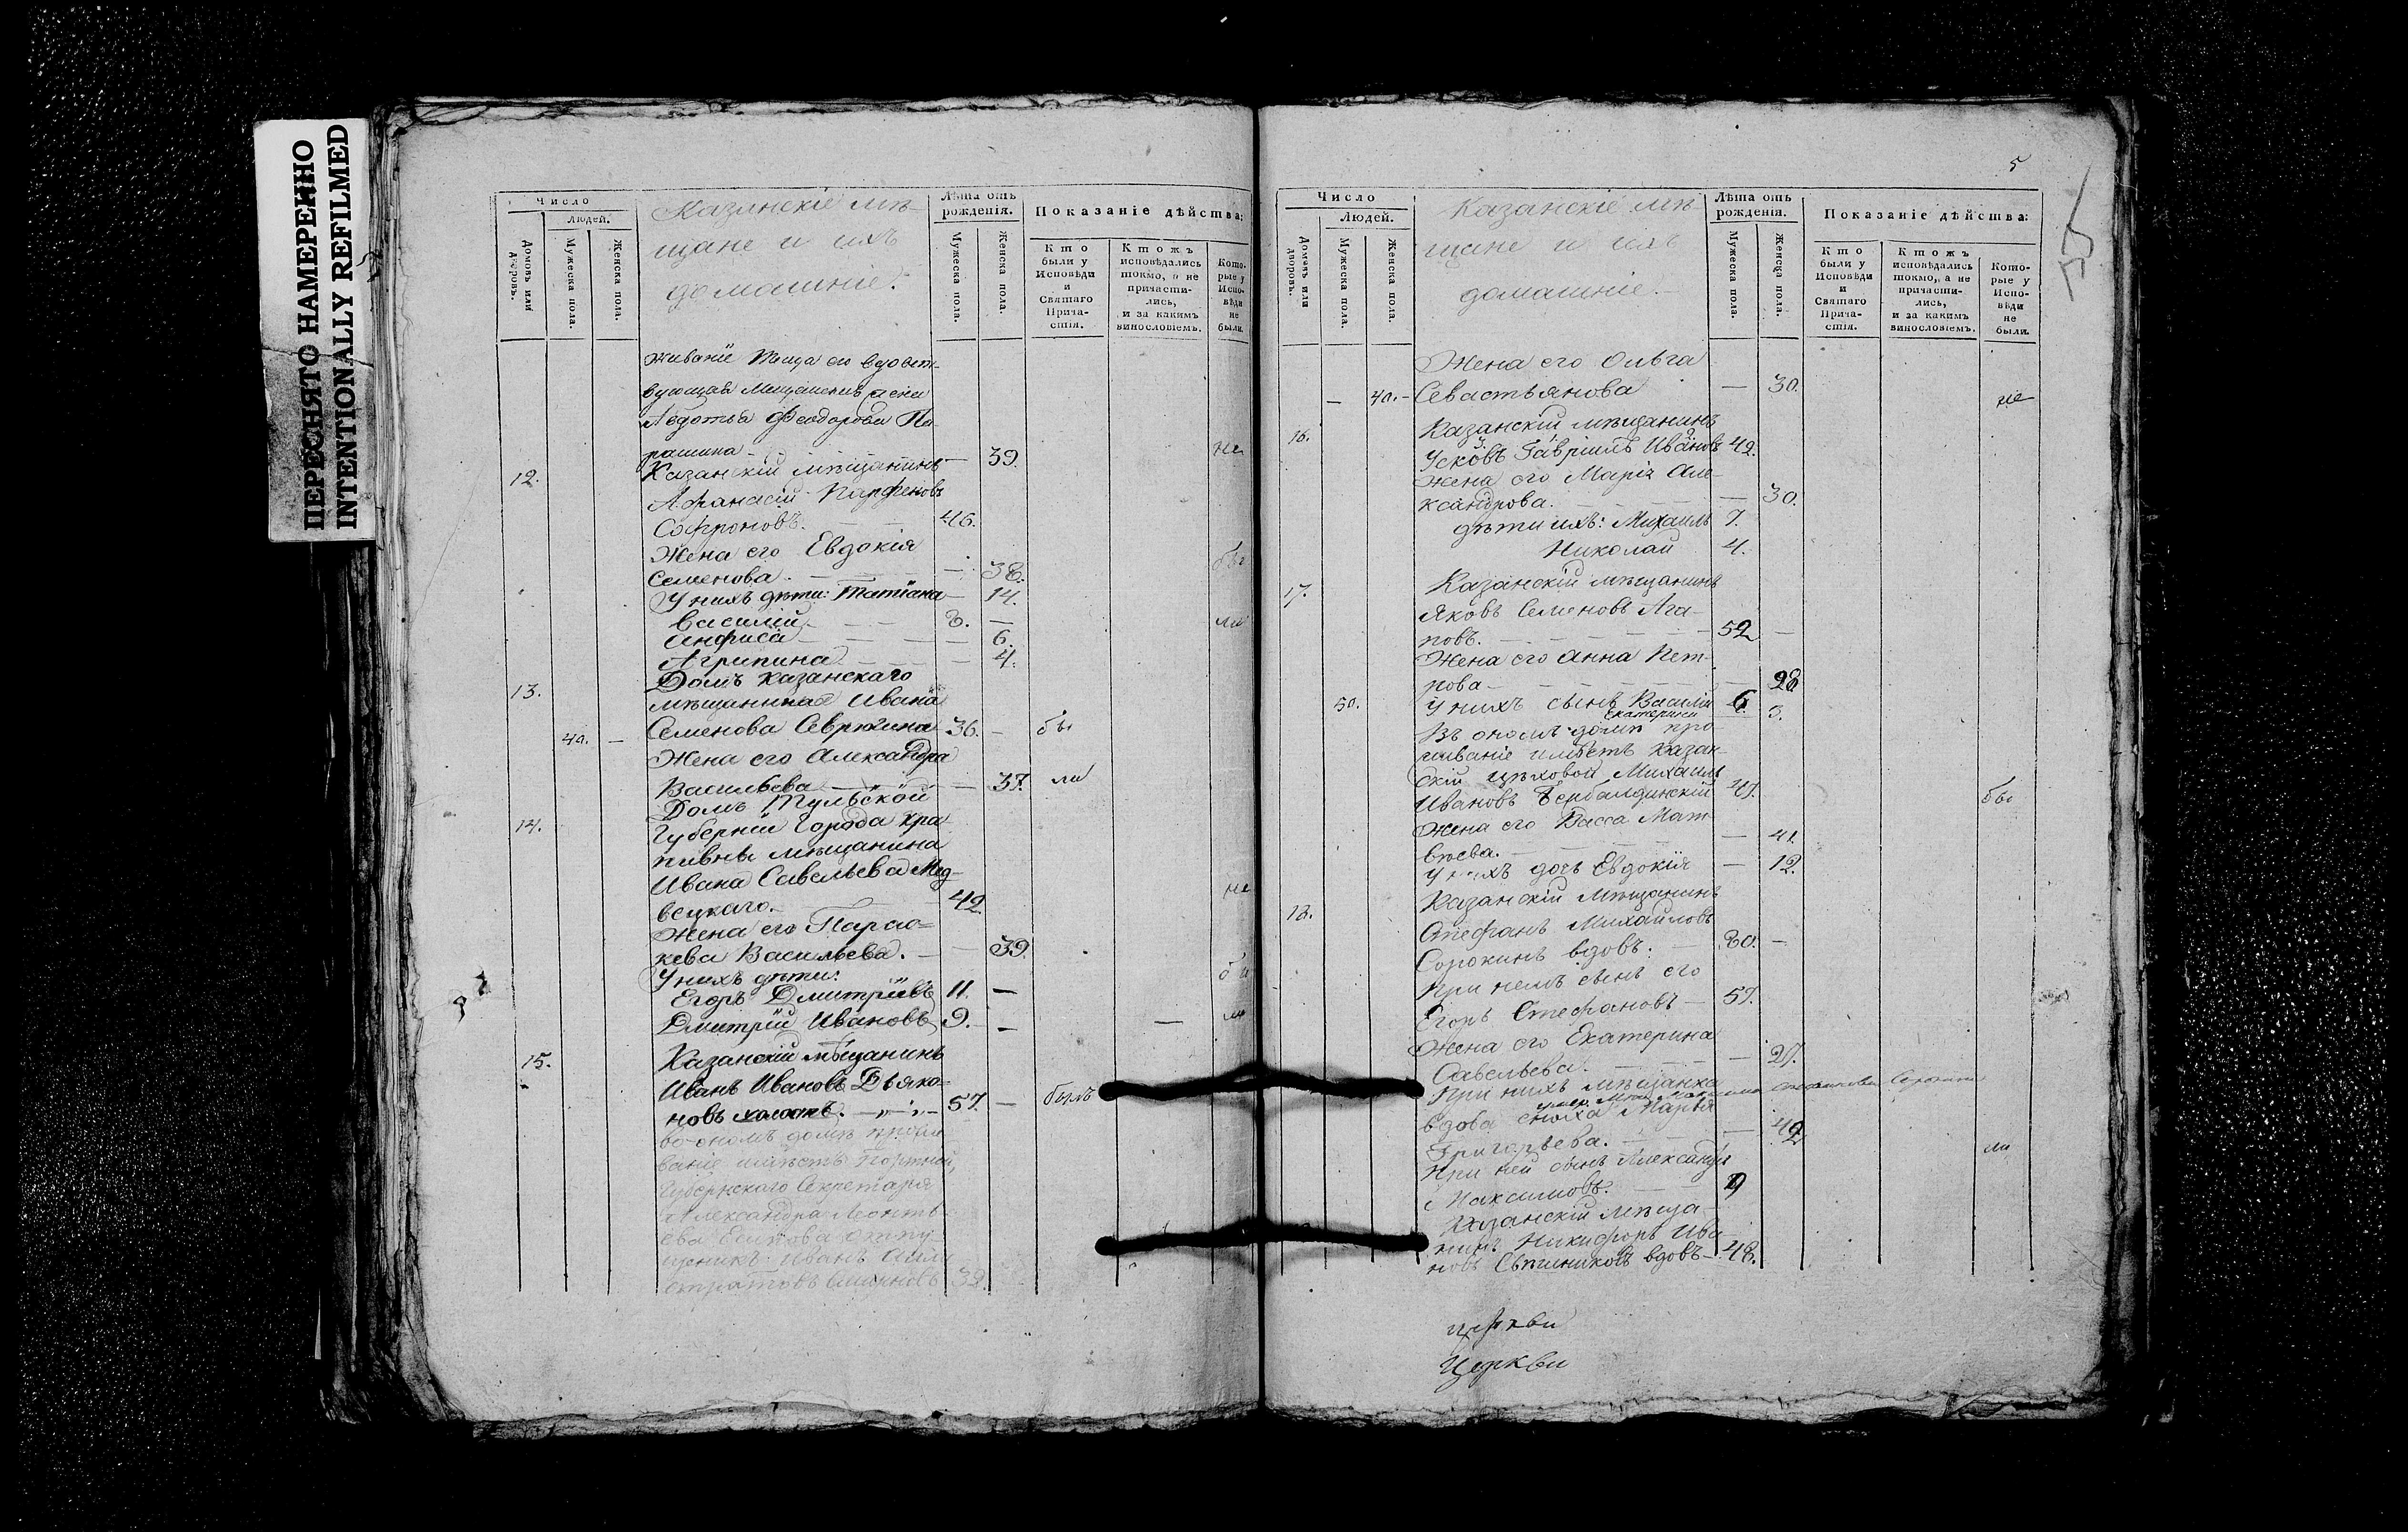 ПЕРЕСНЯТО НАМЕРЕННО
INTENTIONALLY REFILMED
Число
Людей.
Домовъ или дворовъ.
Мужеска пола.
Женска пола.
Казанскіе мѣ-
щане и ихъ
домашніе.
Лѣта отъ рожденія.
Мужеска пола.
Женска пола.
Показаніе дѣйства:
Кто были у Исповѣди и Святаго Прича-стія.
Ктожъ исповѣдались токмо, а не причасти-лись, и за какимъ винословіемъ.
Кото-рые у Испо-вѣди не были.
живаніе вдовст-
вующая
Авдотья Феодорова Па-
рашина 39. не
12. Казанскій мѣщанинъ
Афанасій Парфеновъ
Софроновъ. 46.
Жена его Евдокія бы
Семенова. 38.
У нихъ дѣти: Татіана 14.
Василій 8. ли
Анфиса 6.
Агрипина 4.
Домъ казанскаго
13. мѣщанина Ивана
40. Семенова Севрюгина 36. бы
Жена его Александра
Васильева 37. ли
Домъ Тульской
14. Губерніи Города Кра
пивны мѣщанина
Ивана Савельева Мед-
вецкаго. 42. не
Жена его Парас=
кева Васильева. 39.
У нихъ дѣти: бы
Егоръ Дмитріевъ 11. —
Дмитрій Ивановъ 9. — ли
15. Казанскій мѣщанинъ
Иванъ Ивановъ Дьяко-
новъ холостъ. 57. — былъ
во ономъ домѣ прожи
ваніе имѣетъ Портной,
Губернскаго Секретаря
Александра Леонть
ева
Иванъ
32.
5
Число
Людей.
Домовъ или дворовъ.
Мужеска пола.
Женска пола.
Казанскіе мѣ
щане и ихъ
домашніе.
Лѣта отъ рожденія.
Мужеска пола.
Женска пола.
Показаніе дѣйства:
Кто были у Исповѣди и Святаго Прича-стія.
Ктожъ исповѣдались токмо, а не причасти-лись, и за какимъ винословіемъ.
Кото-рые у Испо-вѣди не были.
Жена его Ольга
— 40. Севастьянова — 30. не
16. Казанскій мѣщанинъ
Усковъ Гавріилъ Ивановъ 42.
Жена его Марія Але-
ксандрова. — 30.
дѣти ихъ: Михаилъ 7.
Николай 4.
17. Казанскій мѣщанинъ
Яковъ Семеновъ Ага-
повъ. 52 —
Жена его Анна Пет-
рова 28
50. У нихъ сынъ Василій 6.
Екатерина 3.
Въ ономъ домѣ про-
живаніе имѣетъ казан-
скій цѣховой Михаилъ
Ивановъ 47. бы
Жена его Васса Мат
вѣева. — 41
У нихъ дочь Евдокія — 12.
18. Казанскій мѣщанинъ
Стефанъ Михайловъ
Сорокинъ вдовъ. 80. —
При немъ сынъ его
Егоръ Стефановъ — 57.
Жена его Екатерина
Савельева. — 27.
При нихъ мѣщанка
вдова сноха Марья
Григорьева. — 42 ли
При ней сынъ Александръ
Максимовъ. 19
Казанскій мѣща-
нинъ Никифоръ Ива
новъ вдовъ 48.
церкви
Церкви